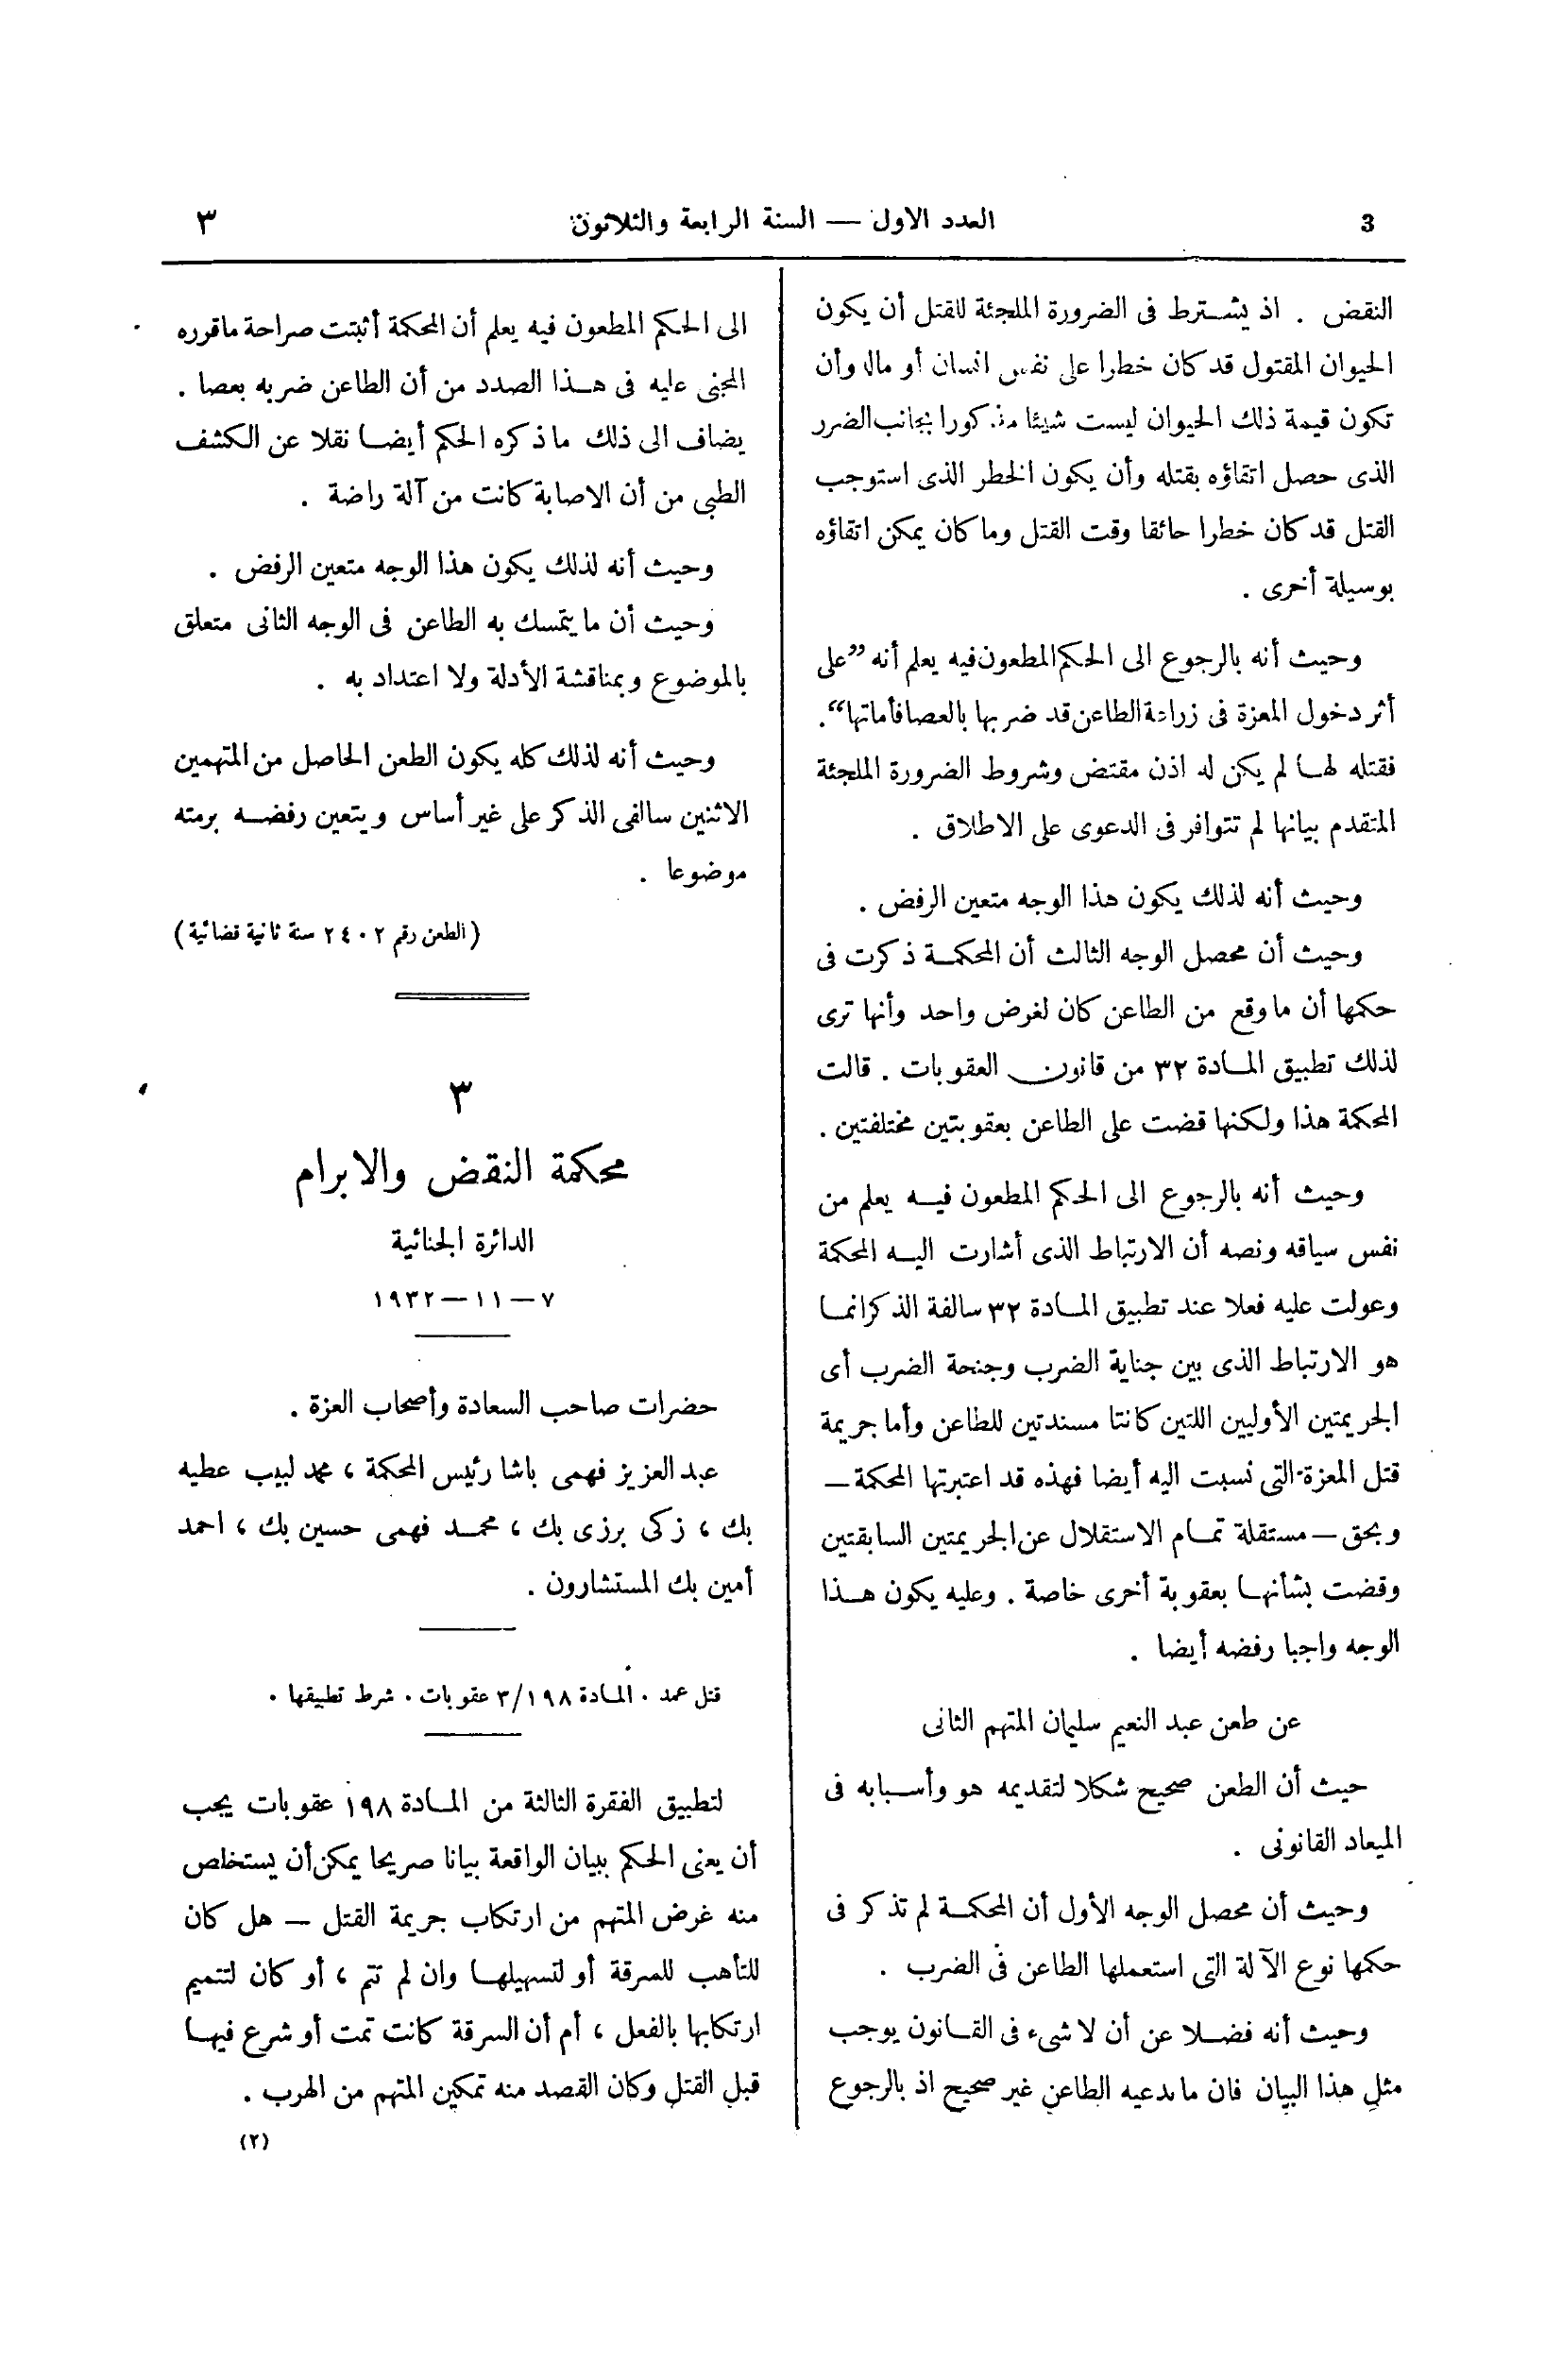 3
العدد الاول — السنة الرابعة والثلاثون
٣
النقض . اذ يشترط فى الضرورة الملجئة للقتل أن يكون
الحيوان المقتول قد كان خطرا على نفس انسان أو ماله وأن
تكون قيمة ذلك الحيوان ليست شيئا مذكورا بجانب الضرر
الذى حصل اتقاؤه بقتله وأن يكون الخطر الذى استوجب
القتل قد كان خطرا حائقا وقت القتل وما كان يمكن اتقاؤه
بوسيلة أخرى .
وحيث أنه بالرجوع الى الحكم المطعون فيه يعلم أنه ”على
أثر دخول المعزة فى زراعة الطاعن قد ضربها بالعصا فأماتها“.
فقتله لها لم يكن له اذن مقتض وشروط الضرورة الملجئة
المتقدم بيانها لم تتوافر فى الدعوى على الاطلاق .
وحيث أنه لذلك يكون هذا الوجه متعين الرفض .
وحيث أن محصل الوجه الثالث أن المحكمة ذكرت فى
حكمها أن ما وقع من الطاعن كان لغرض واحد وأنها ترى
لذلك تطبيق المادة ٣٢ من قانون العقوبات . قالت
المحكمة هذا ولكنها قضت على الطاعن بعقوبتين مختلفتين .
وحيث أنه بالرجوع الى الحكم المطعون فيه يعلم من
نفس سياقه ونصه أن الارتباط الذى أشارت اليه المحكمة
وعولت عليه فعلا عند تطبيق المادة ٣٢ سالفة الذكر انما
هو الارتباط الذى بين جناية الضرب وجنحة الضرب أى
الجريمتين الأوليين اللتين كانتا مسندتين للطاعن وأما جريمة
قتل المعزة التى نسبت اليه أيضا فهذه قد اعتبرتها المحكمة —
وبحق — مستقلة تمام الاستقلال عن الجريمتين السابقتين
وقضت بشأنها بعقوبة أخرى خاصة . وعليه يكون هذا
الوجه واجبا رفضه أيضا .
عن طعن عبد النعيم سليمان المتهم الثانى
حيث أن الطعن صحيح شكلا لتقديمه هو وأسبابه فى
الميعاد القانونى .
وحيث أن محصل الوجه الأول أن المحكمة لم تذكر فى
حكمها نوع الآلة التى استعملها الطاعن فى الضرب .
وحيث أنه فضلا عن أن لا شىء فى القانون يوجب
مثل هذا البيان فان ما يدعيه الطاعن غير صحيح اذ بالرجوع
الى الحكم المطعون فيه يعلم أن المحكمة أثبتت صراحة ما قرره
المجنى عليه فى هذا الصدد من أن الطاعن ضربه بعصا .
يضاف الى ذلك ما ذكره الحكم أيضا نقلا عن الكشف
الطبى من أن الاصابة كانت من آلة راضة .
وحيث أنه لذلك يكون هذا الوجه متعين الرفض .
وحيث أن ما يتمسك به الطاعن فى الوجه الثانى متعلق
بالموضوع وبمناقشة الأدلة ولا اعتداد به .
وحيث أنه لذلك كله يكون الطعن الحاصل من المتهمين
الاثنين سالفى الذكر على غير أساس ويتعين رفضه برمته
موضوعا .
(الطعن رقم ٢٤٠٢ سنة ثانية قضائية)
٣
محكمة النقض والابرام
الدائرة الجنائية
٧ — ١١ — ١٩٣٢
حضرات صاحب السعادة وأصحاب العزة .
عبد العزيز فهمى باشا رئيس المحكمة ، محمد لبيب عطيه
بك ، زكى برزى بك ، محمد فهمى حسين بك ، احمد
أمين بك المستشارون .
قتل عمد . المادة ٣/١٩٨ عقوبات . شرط تطبيقها .
لتطبيق الفقرة الثالثة من المادة ١٩٨ عقوبات يجب
أن يعنى الحكم ببيان الواقعة بيانا صريحا يمكن أن يستخلص
منه غرض المتهم من ارتكاب جريمة القتل — هل كان
للتأهب للسرقة أو لتسهيلها وان لم تتم ، أو كان لتتميم
ارتكابها بالفعل ، أم أن السرقة كانت تمت أو شرع فيها
قبل القتل وكان القصد منه تمكين المتهم من الهرب .
(٢)